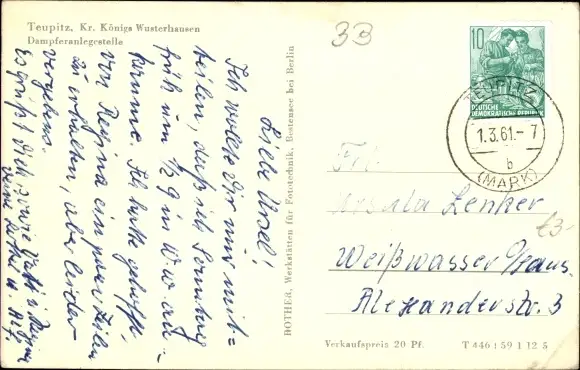 Teupitz, Kr. Königs Wusterhausen
Dampferanlegestelle
33
10
DEUTSCHE
DEMOKRATISCHE REPUBLIK
TEUPITZ
1.3.61.-7
b
(MARK)
Liebe Ursel!
Ich wollte Dir nur mit=
teilen, daß ich Sonntag
früh um 1/2 9 in W.w. an-
komme. Ich hatte gehofft,
von Regina ein paar Zeilen
zu erhalten, aber leider
vergebens.
Es grüßt Dich sowie
Deine
BOTHER, Werkstätten für Fototechnik, Bestensee bei Berlin
Frl.
Ursula Lenker
Weißwasser
Alexanderstr. 3
£3-
Verkaufspreis 20 Pf.
T 446 : 59 1 12 5